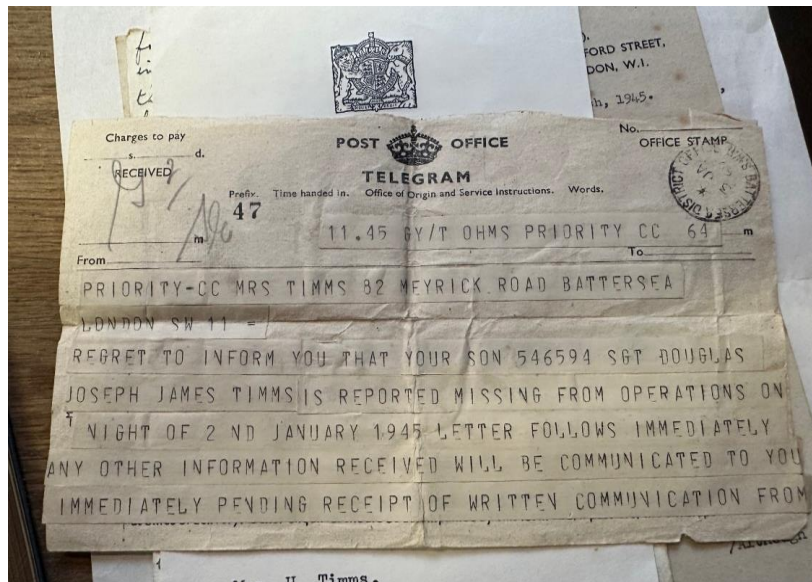 FORD STREET,
DON, W.I.
1945.
Charges to pay
s. d.
RECEIVED
POST OFFICE
TELEGRAM
No.
OFFICE STAMP
Prefix. Time handed in. Office of Origin and Service Instructions. Words.
47
m
11.45 GY/T OHMS PRIORITY CC 64 m
From
To
PRIORITY-CC MRS TIMMS 82 MEYRICK ROAD BATTERSEA
LONDON SW 11 =
REGRET TO INFORM YOU THAT YOUR SON 546594 SGT DOUGLAS
JOSEPH JAMES TIMMS IS REPORTED MISSING FROM OPERATIONS ON
NIGHT OF 2 ND JANUARY 1945 LETTER FOLLOWS IMMEDIATELY
ANY OTHER INFORMATION RECEIVED WILL BE COMMUNICATED TO YOU
IMMEDIATELY PENDING RECEIPT OF WRITTEN COMMUNICATION FROM
Timms.